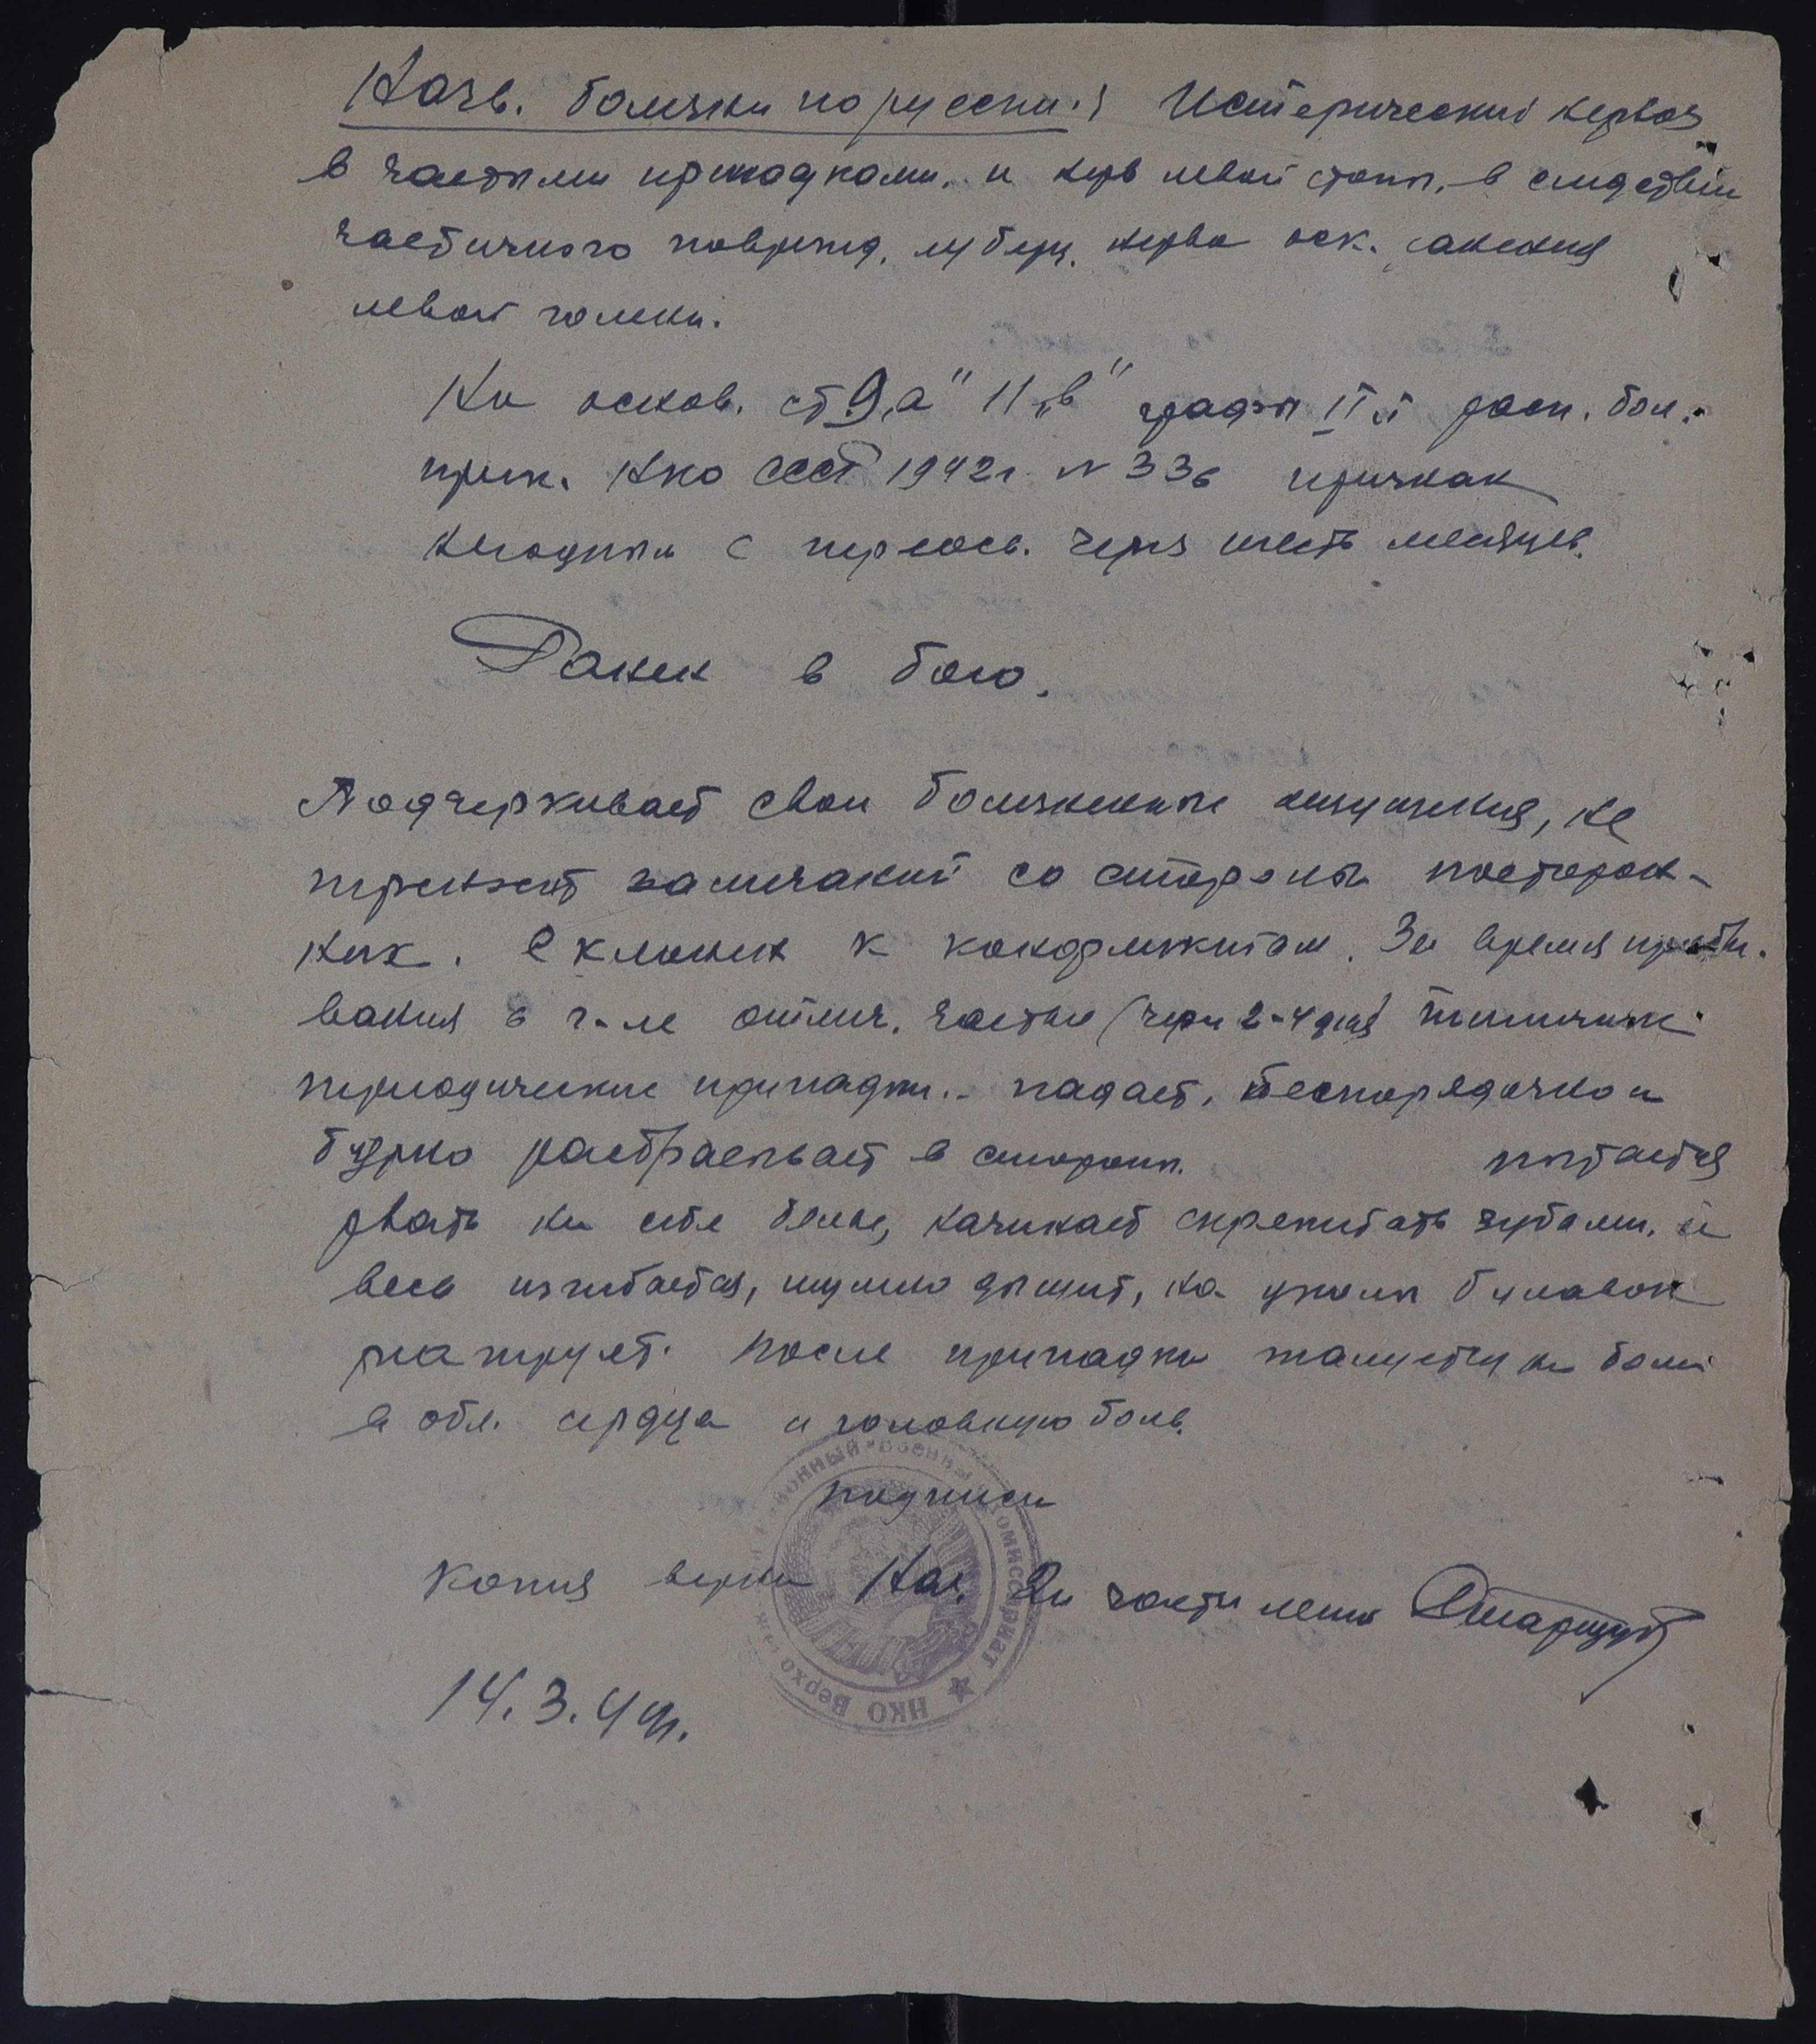 Назв. болезни по русски: Истерический невроз
в частыми припадками, и нев левой стопы, в следствии
частичного поврежд. м/берц. нерва оск. ранения
левой голени.
На основ. ст 9 „а" 11 „в" графы II й расп. бол.
прик. НКО СССР 1942 г. N 336 признан
негодным с переосв. через шесть месяцев.
Ранен в бою.
Подчеркивает свои болезненные ощущения, не
терпит замечаний со стороны посторон-
них. Склонен к конфликтам. За время пребы-
вания в г-ле отмеч. частые (через 2-4 дня)
периодические припадки.. падает, беспорядочно и
бурно разбрасывает в стороны. пытается
рвать на себе белье, начинает скрежетать зубами, и
весь изгибается, шумно дышит, на уколы булавок
реагирует. После припадка жалуется на боли
в обл. сердца и головную боль.
подписи
Копия верна Нач. 2й части лент
14.3.44г.
районный военный комиссариат ★ НКО Верхо